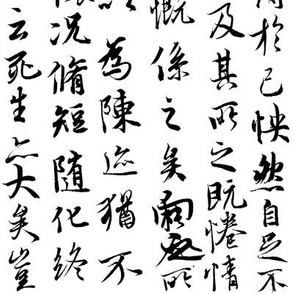 於己怏然自足不
及其所之既惓情
慨係之矣向之所
為陳迹猶不
況脩短随化終
云死生亦大矣豈